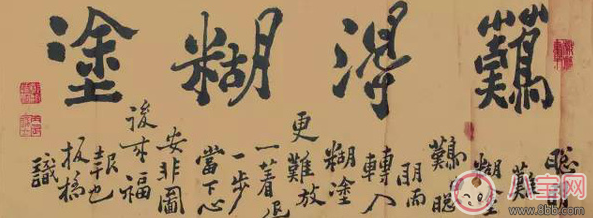 難得糊塗
聰
難
糊塗
難聰
明而
轉入
糊塗
更難放
一著退
一步
當下心
安非圖
後来福
報也
板橋
識
八宝网
www.8bb.com